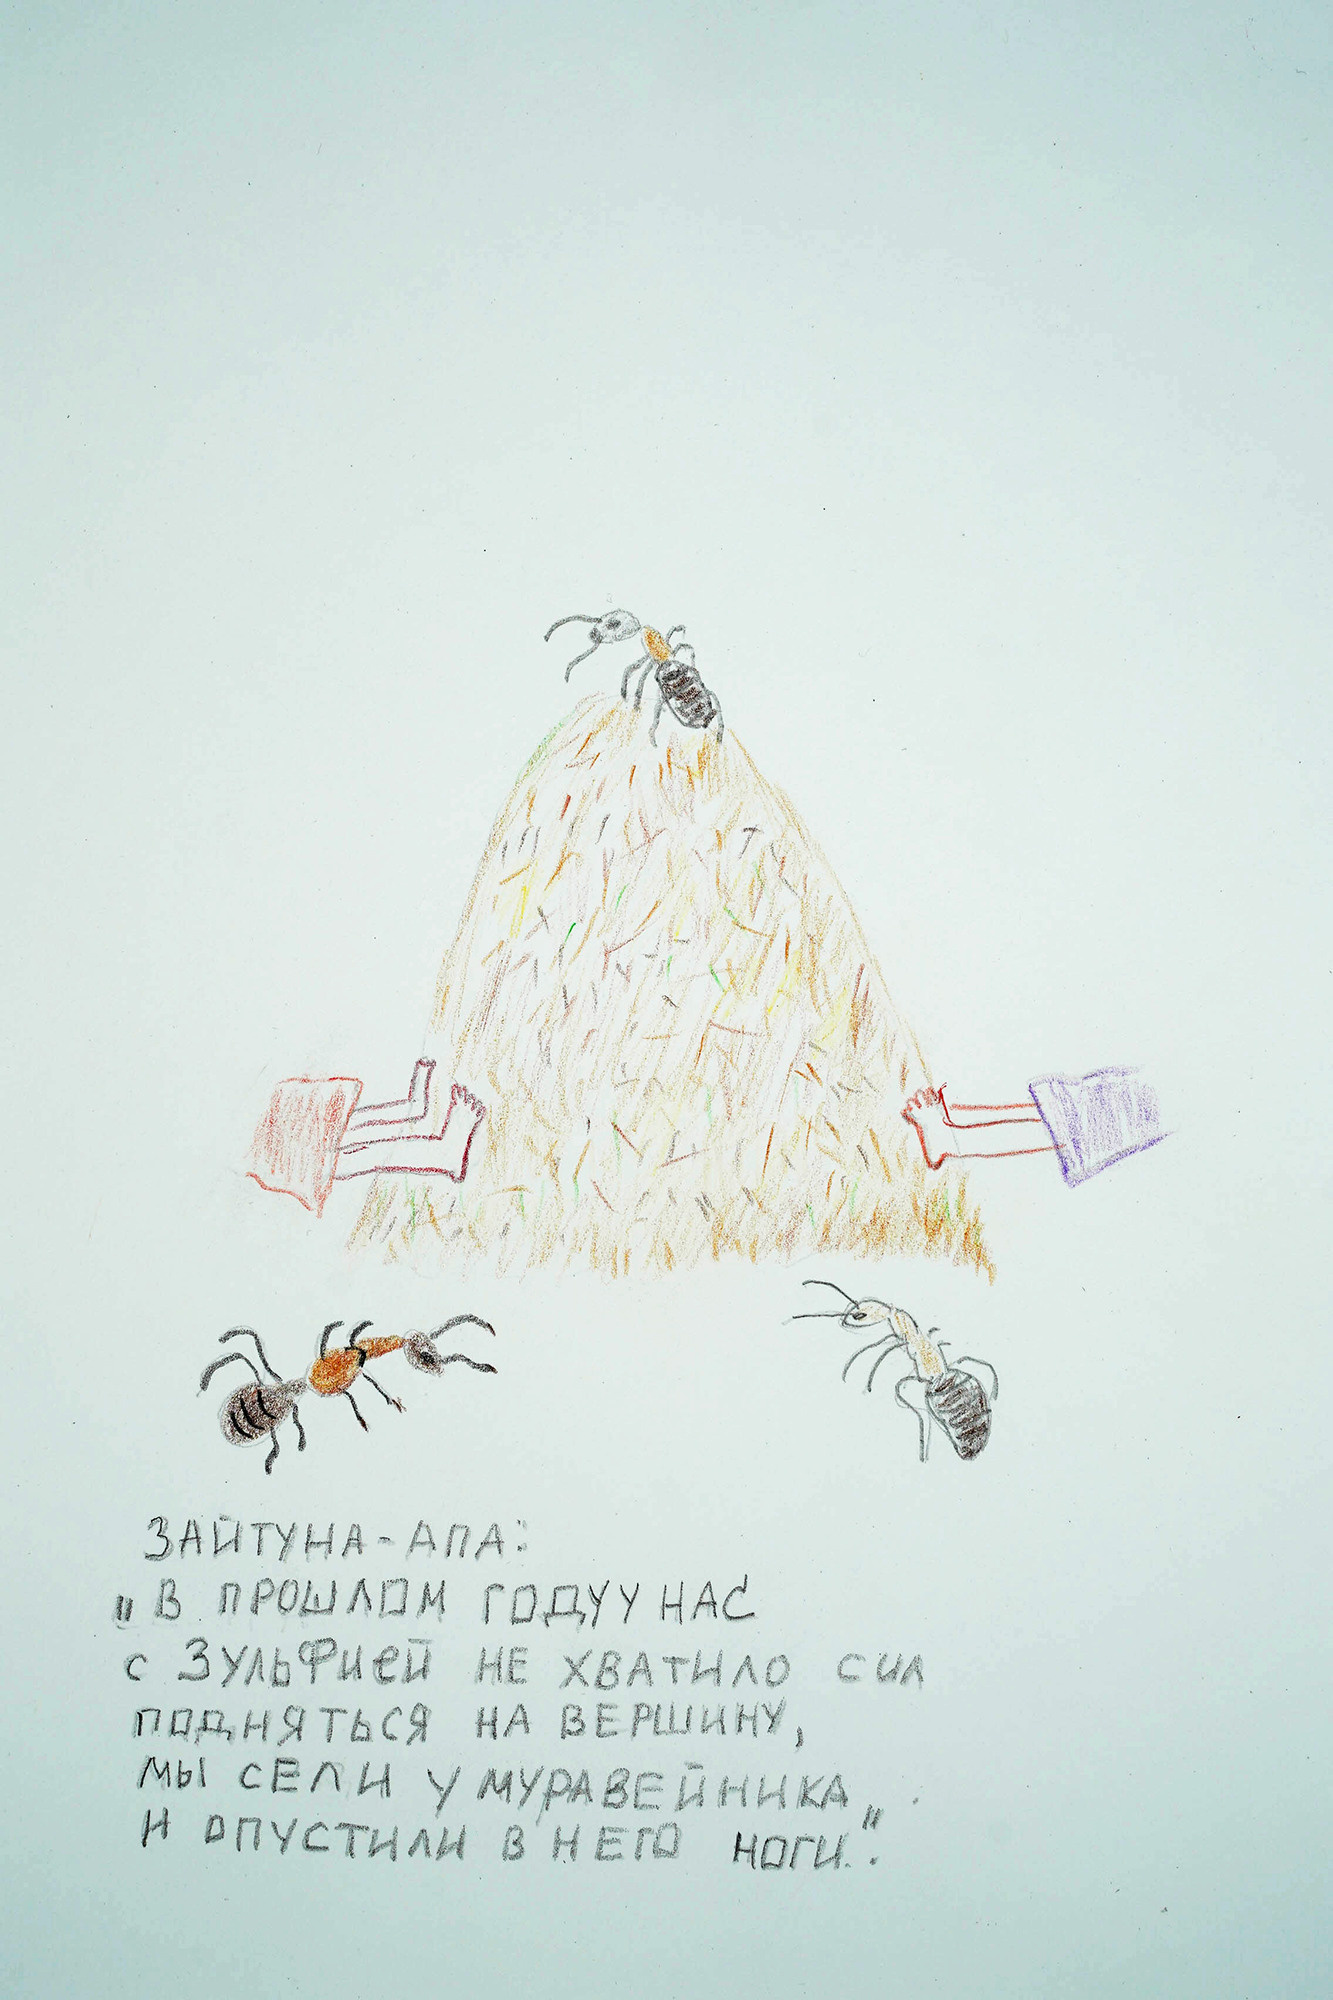 ЗАЙТУНА-АПА:
"В ПРОШЛОМ ГОДУ У НАС
С ЗУЛЬФИЕЙ НЕ ХВАТИЛО СИЛ
ПОДНЯТЬСЯ НА ВЕРШИНУ,
МЫ СЕЛИ У МУРАВЕЙНИКА
И ОПУСТИЛИ В НЕГО НОГИ."